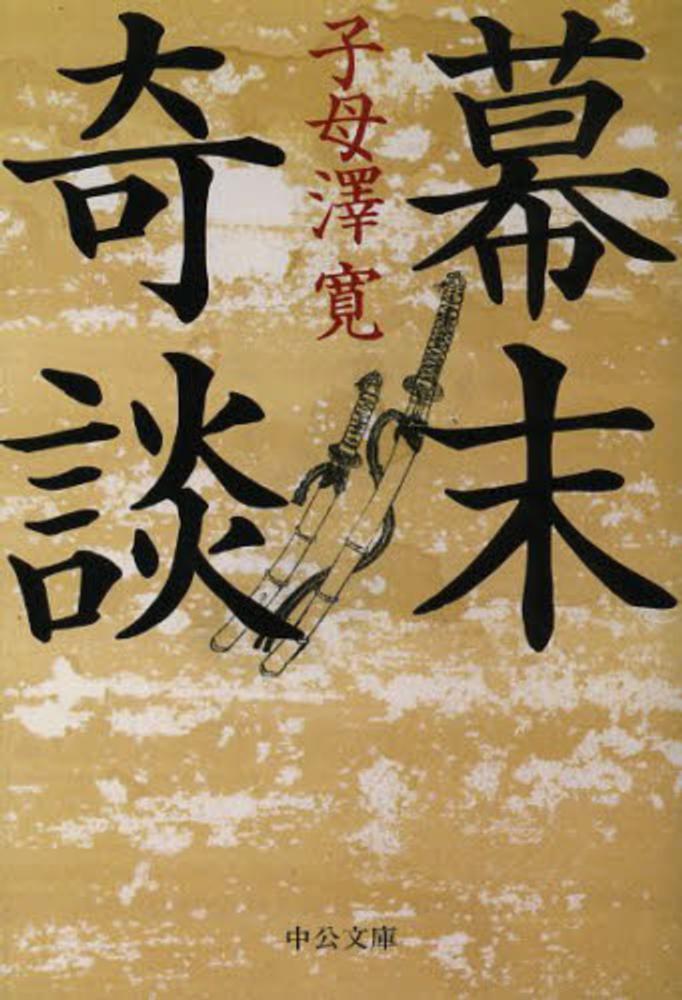 幕末
子母澤 寛
奇談
中公文庫